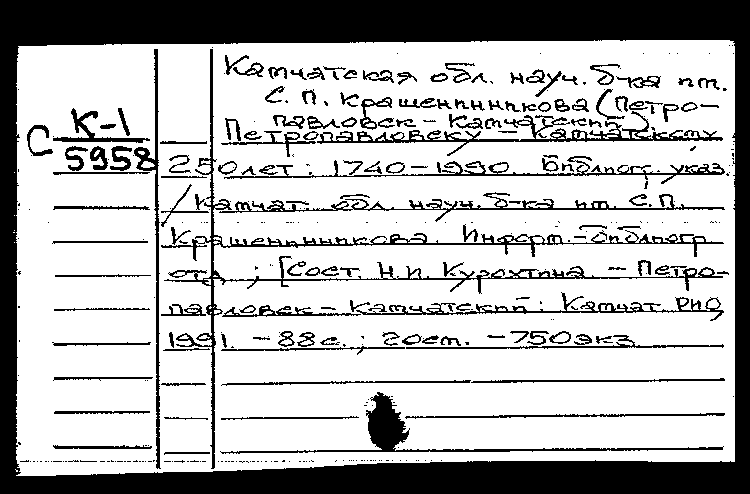 Камчатская обл. науч. б-ка им.
С. П. Крашенинникова (Петро-
павловск-Камчатский).
С К-1
5958
Петропавловску-Камчатскому
250 лет: 1740-1990. Библиогр. указ.
/ Камчат. обл. науч. б-ка им. С.П.
Крашенинникова. Информ.-библиогр.
отд.; [Сост. Н.И. Курохтина. - Петро-
павловск-Камчатский: Камчат. РИО,
1991. - 88 с.; 20 см. - 750 экз